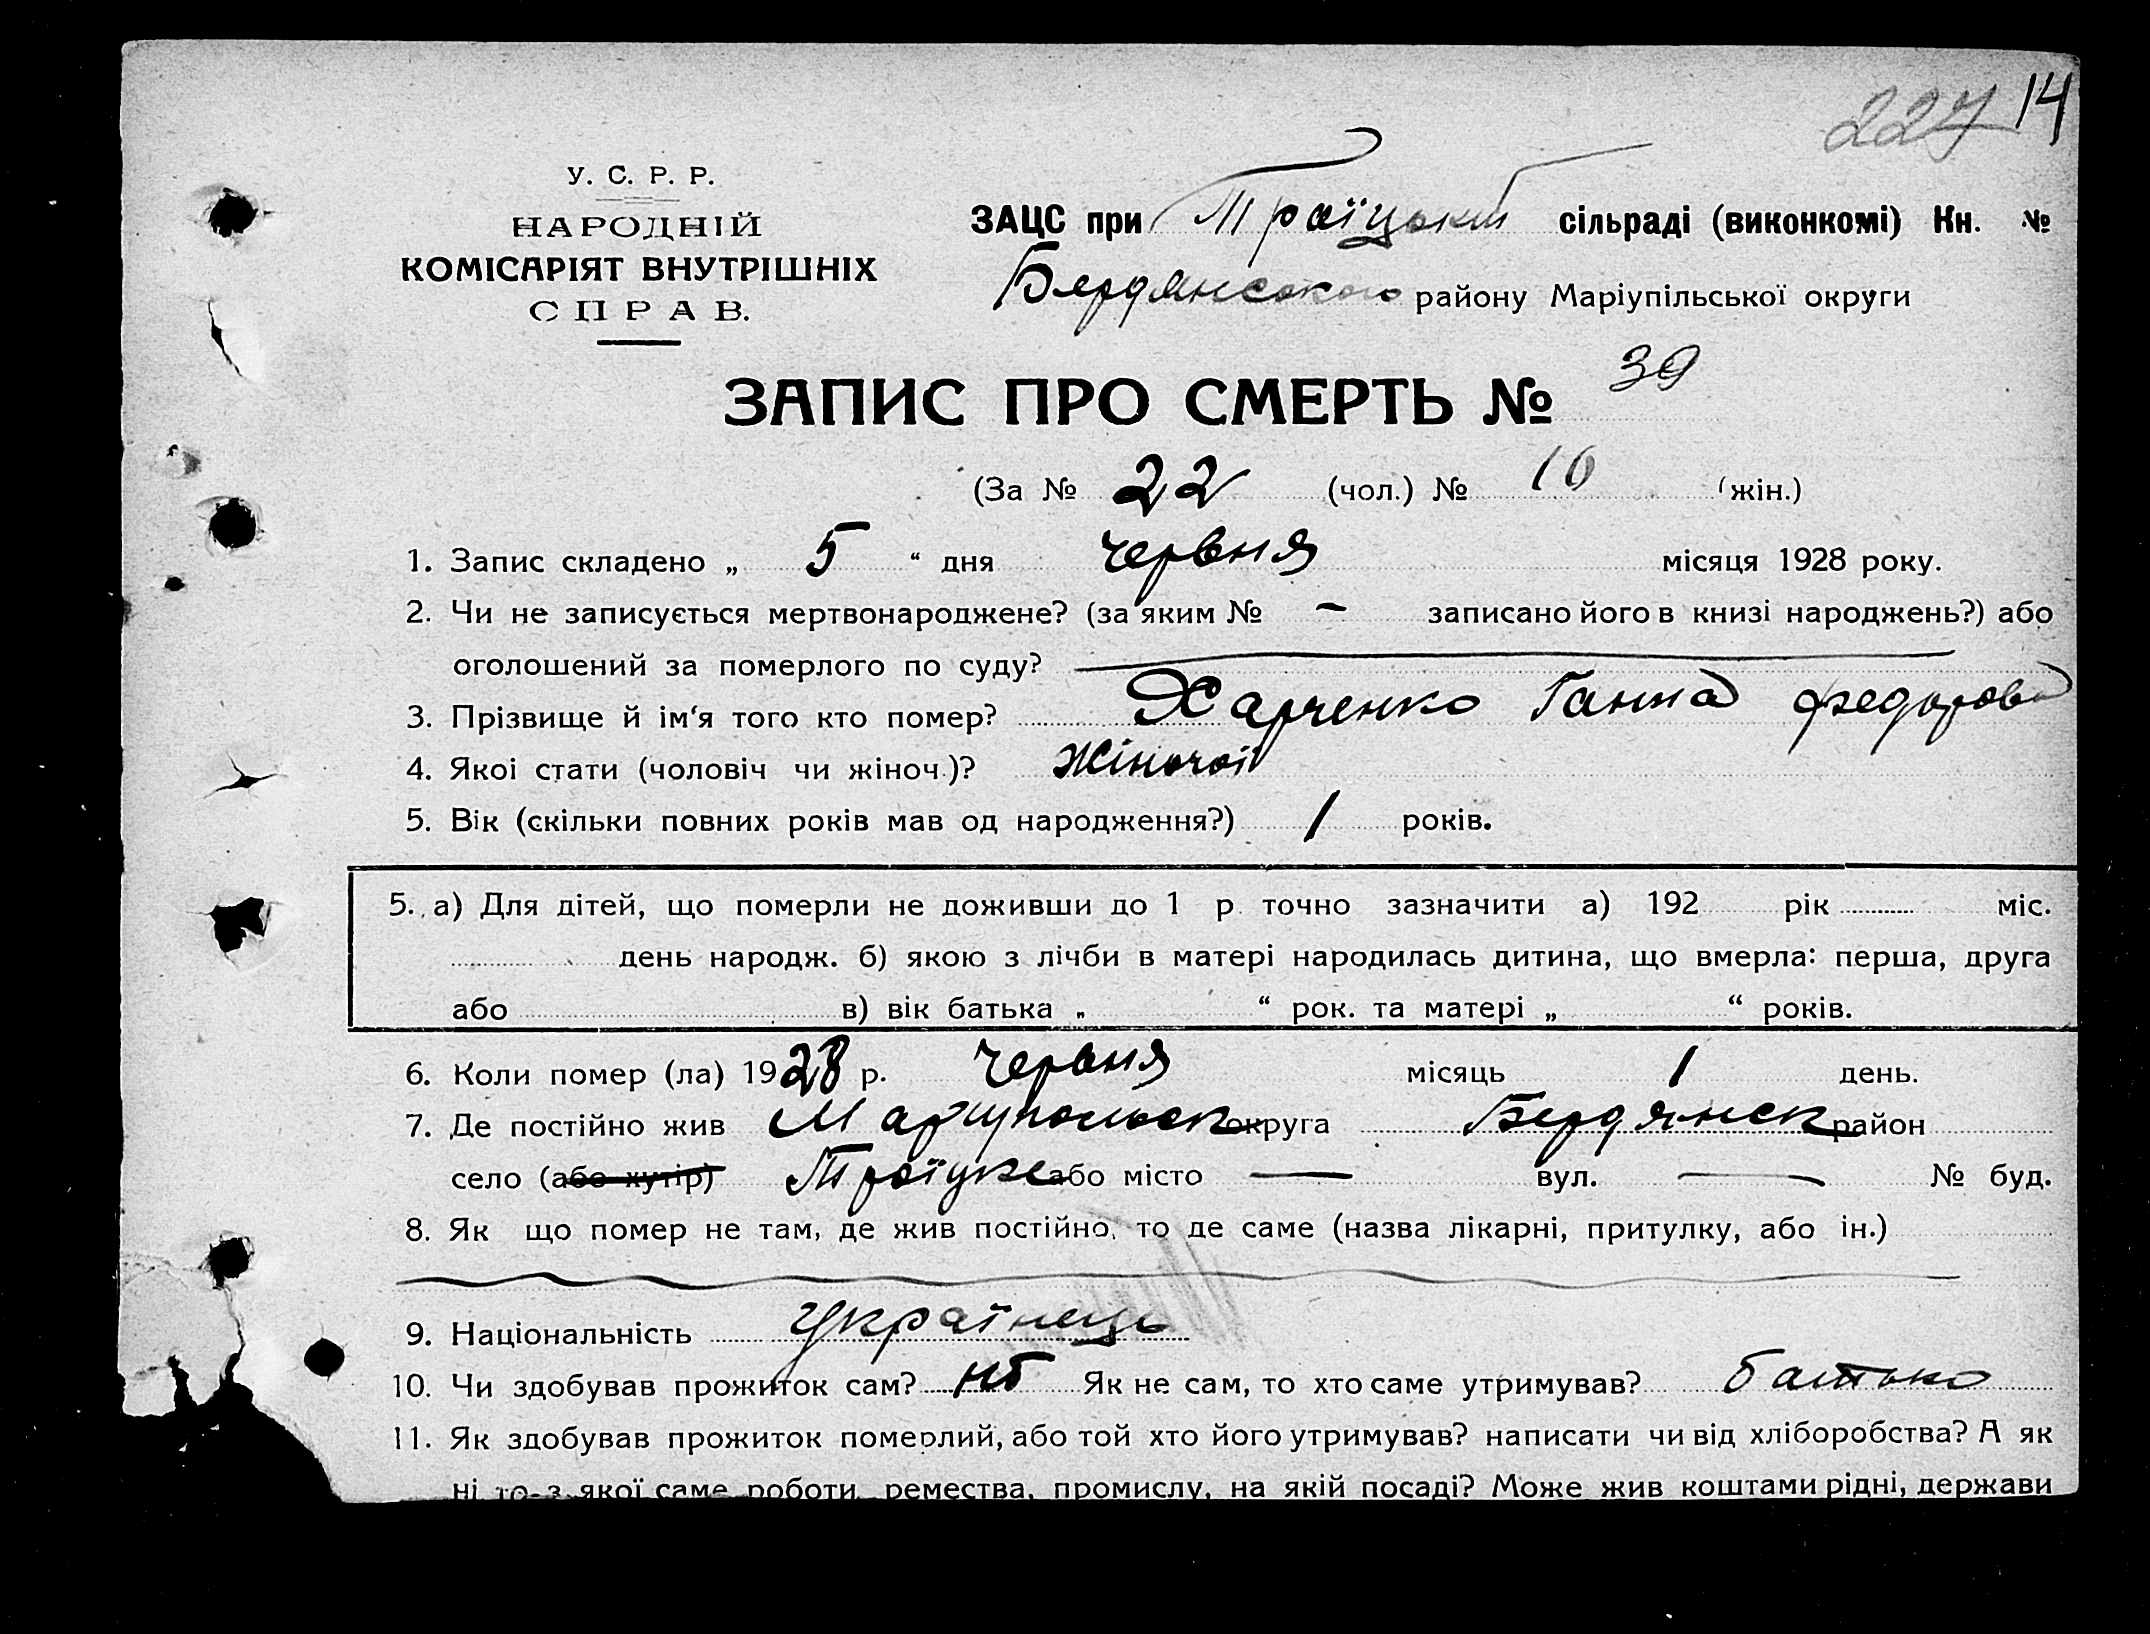 227 14
У. С. Р. Р.
НАРОДНІЙ
КОМІСАРІЯТ ВНУТРІШНІХ
СПРАВ.
ЗАЦС при Троїцькій сільраді (виконкомі) Кн. №
Бердянського району Маріупільської округи
ЗАПИС ПРО СМЕРТЬ № 39
(За № 22 (чол.) № 10 (жін.)
1. Запис складено „ 5 “ дня червня місяця 1928 року.
2. Чи не записується мертвонароджене? (за яким № — записано його в книзі народжень?) або
оголошений за померлого по суду? —
3. Прізвище й ім‘я того кто помер? Харченко Ганна Федорова
4. Якоі стати (чоловіч чи жіноч.)? Жіночої
5. Вік (скільки повних років мав од народження?) 1 років.
5. а) Для дітей, що померли не доживши до 1 р. точно зазначити а) 192 рік міс.
день народж. б) якою з лічби в матері народилась дитина, що вмерла: перша, друга
або в) вік батька „ “ рок. та матері „ “ років.
6. Коли помер (ла) 1928 р. червня місяць 1 день.
7. Де постійно жив Маріупольськ округа Бердянськ район
село (або хутір) Троїцке або місто — вул. — № буд.
8. Як що помер не там, де жив постійно, то де саме (назва лікарні, притулку, або ін.)
9. Національність Українець
10. Чи здобував прожиток сам? ні Як не сам, то хто саме утримував? батько
11. Як здобував прожиток померлий, або той хто його утримував? написати чи від хліборобства? А як
ні то з якої саме роботи, ремества, промислу, на якій посаді? Може жив коштами рідні, держави